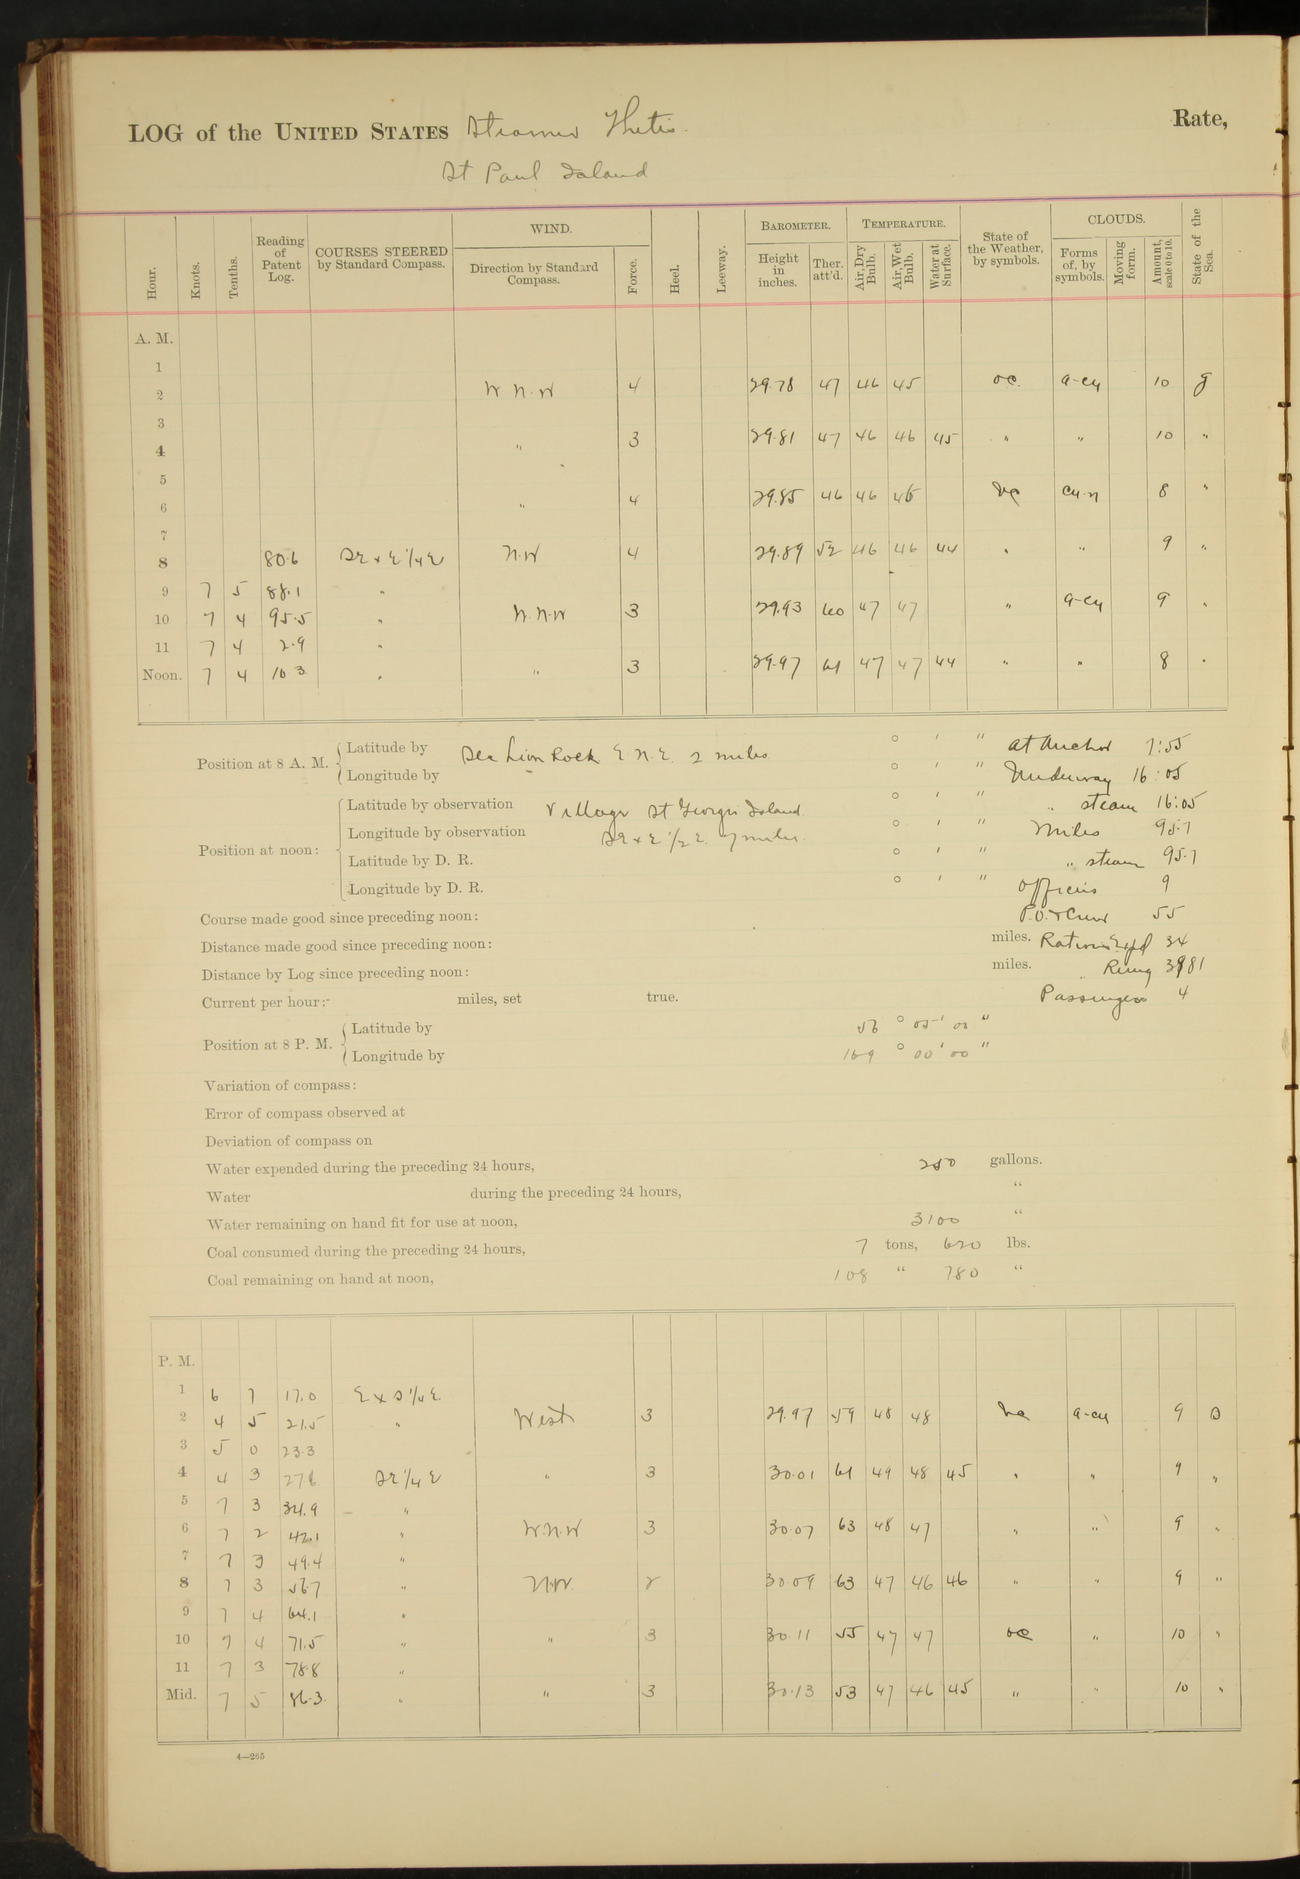 LOG of the UNITED STATES Steamer Thetis. Rate,
St Paul Island
Hour. Knots. Tenths. Reading of Patent Log. COURSES STEERED by Standard Compass. WIND. Direction by Standard Compass. Force. Heel. Leeway. BAROMETER. Height in inches. Ther. att'd. TEMPERATURE. Air, Dry Bulb. Air, Wet Bulb. Water at Surface. State of the Weather, by symbols. CLOUDS. Forms of, by symbols. Moving form. Amount, scale 0 to 10. State of the Sea.
A. M.
1
2 W N.W 4 29.78 47 46 45 oc. a-cu 10 g
3
4 " 3 29.81 47 46 46 45 " " 10 "
5
6 " 4 29.85 46 46 46 cu-n 8 "
7
8 80.6 SE x E 1/4 E N.W 4 29.89 52 46 46 44 " " 9 "
9 7 5 88.1 "
10 7 4 95.5 " W.N.W 3 29.93 60 47 47 " a-cu 9 "
11 7 4 2.9 "
Noon. 7 4 10 3 " " 3 29.97 61 47 47 44 " " 8 "
Position at 8 A. M. Latitude by Sea Lion Rock E N.E. 2 miles ° ' " at Anchor 7:55
Longitude by ° ' " Underway 16:05
Position at noon: Latitude by observation Village St Georges Island ° ' " " steam 16:05
Longitude by observation SE x E 1/2 E. 7 miles. ° ' " Miles 95.7
Latitude by D. R. ° ' " " steam 95.7
Longitude by D. R. ° ' " Officers 9
Course made good since preceding noon: P.O. & Crew 55
Distance made good since preceding noon: miles. Rations Expd 34
Distance by Log since preceding noon: miles. " Remg
Current per hour: miles, set true. Passengers 4
Position at 8 P. M. Latitude by 56 ° 05 ' 00 "
Longitude by 169 ° 00 ' 00 "
Variation of compass:
Error of compass observed at
Deviation of compass on
Water expended during the preceding 24 hours, 250 gallons.
Water during the preceding 24 hours, "
Water remaining on hand fit for use at noon, 3100 "
Coal consumed during the preceding 24 hours, 7 tons, 620 lbs.
Coal remaining on hand at noon, 108 " 780 "
P. M.
1 6 7 17.0 E x S 1/4 E.
2 4 5 21.5 " West 3 29.97 59 48 48 a-cu 9 S
3 5 0 23.3
4 4 3 27 6 SE 1/4 E " 3 30.01 61 49 48 45 " " 9 "
5 7 3 34.9 "
6 7 2 42.1 " W.N.W 3 30.07 63 48 47 " " 9 "
7 7 3 49.4 "
8 7 3 56.7 " N.W. 2 30.09 63 47 46 46 " " 9 "
9 7 4 64.1 "
10 7 4 71.5 " " 3 30.11 55 47 47 oc " 10 "
11 7 3 78.8 "
Mid. 7 5 86.3 " " 3 30.13 53 47 46 45 " " 10 "
4—265